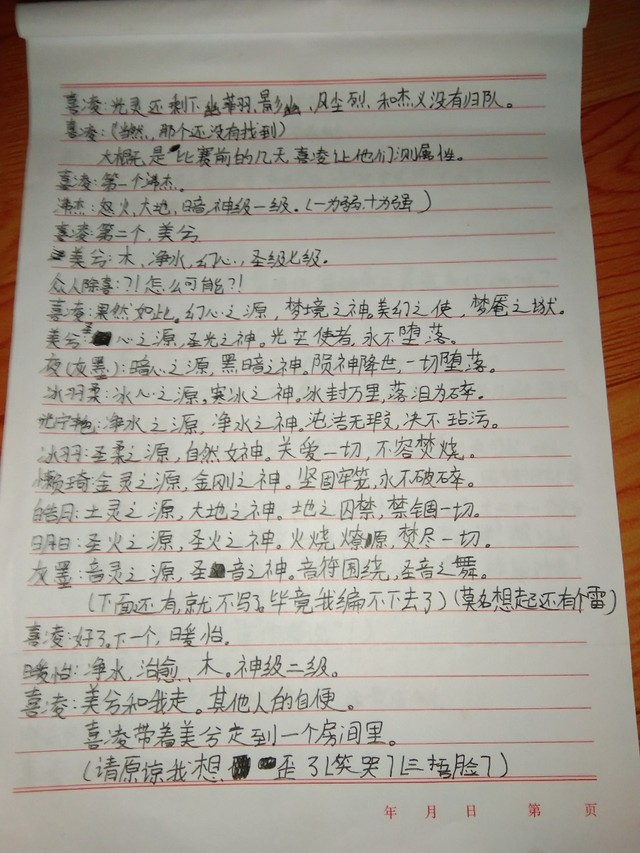 喜凌:光灵还剩下幽華羽、影幽、风尘烈、和杰义没有归队。
喜凌:(当然,那个还没有找到)
大概是比赛前的几天,喜凌让他们测属性。
喜凌:第一个沸杰。
沸杰:怒火、大地、暗,神级一级。(一为弱,十为强)
喜凌:第二个,美兮
美兮:木、净水、幻心,圣级七级。
众人除喜:?!怎么可能?!
喜凌:果然如此。幻心之源,梦境之神。美幻之使,梦魇之状。
美兮:圣心之源,圣光之神。光芒使者,永不堕落。
夜(灰墨):暗心之源,黑暗之神。陨神降世,一切堕落。
冰羽柔:冰心之源,寒冰之神。冰封万里,落泪为碎。
净水之源,净水之神。纯洁无瑕,决不玷污。
冰羽:圣柔之源,自然女神。关爱一切,不容焚烧。
琦:金灵之源,金刚之神。坚固牢笼,永不破碎。
皓月:土灵之源,大地之神。地之囚禁,禁锢一切。
日月日:圣火之源,圣火之神。火烧燎原,焚尽一切。
灰墨:音灵之源,圣音之神。音符围绕,圣音之舞。
(下面还有,就不写了,毕竟我编不下去了)(莫名想起还有个雷)
喜凌:好了。下一个,暖怡。
暖怡:净水,治愈、木。神级二级。
喜凌:美兮和我走。其他人的自便。
喜凌带着美兮走到一个房间里。
(请原谅我想歪了[笑哭][三捂脸])
年 月 日 第 页